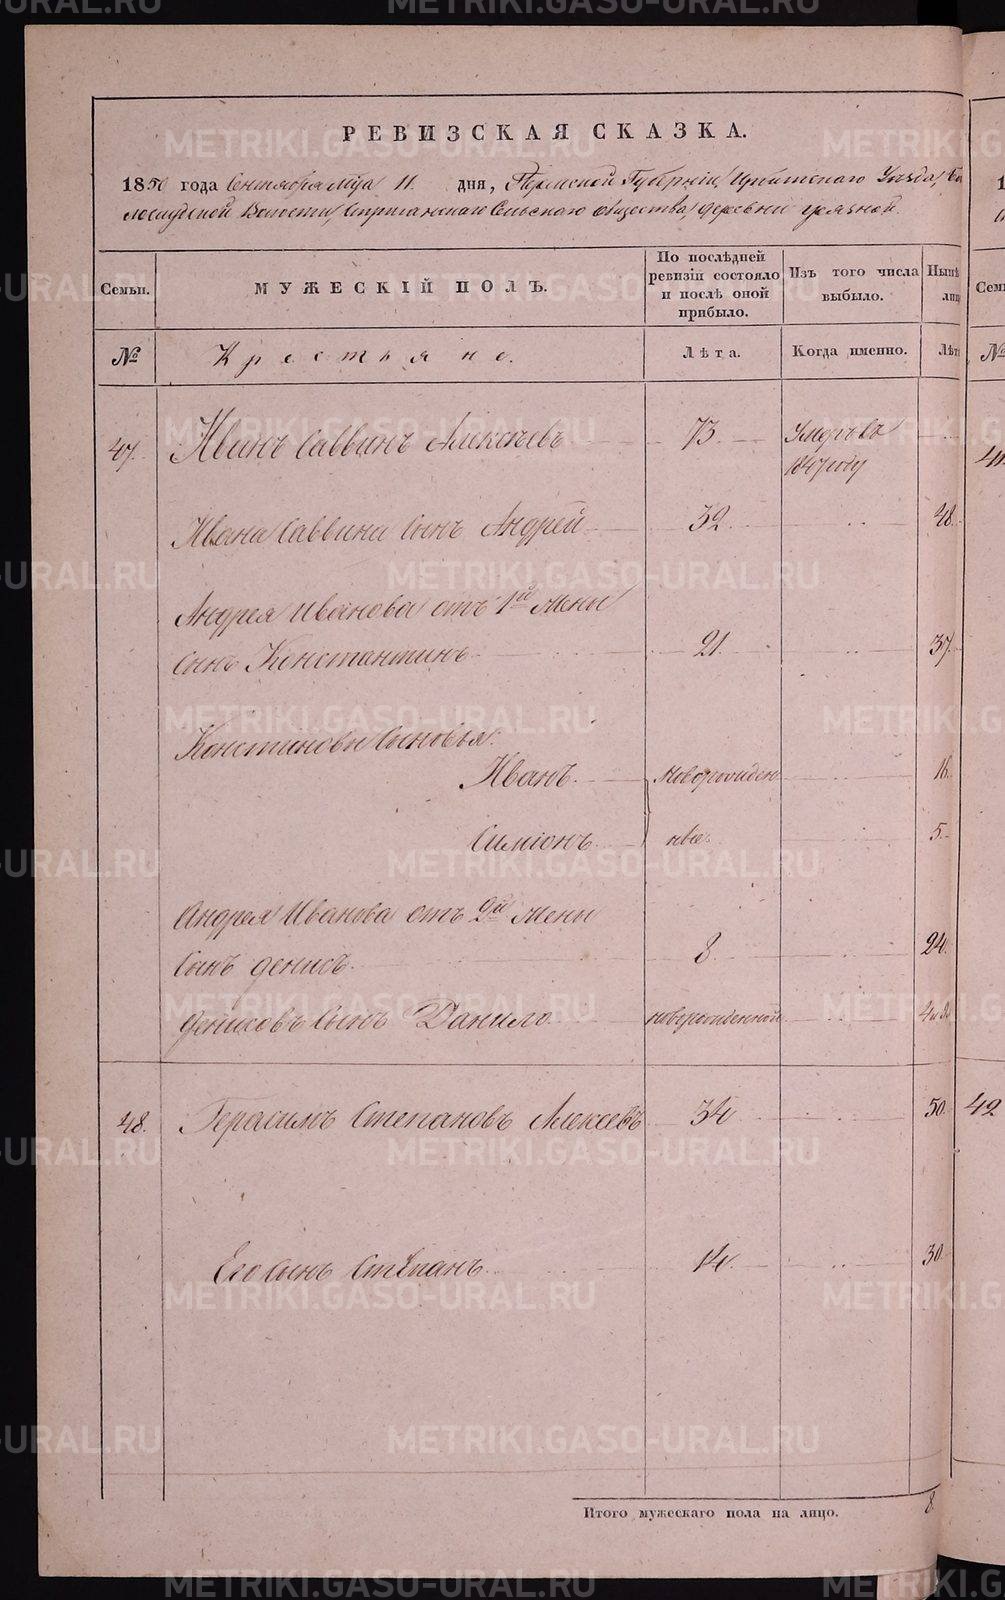 РЕВИЗСКАЯ СКАЗКА.
1850 года Сентября м-ца 11. дня, Пермской Губерніи, Ирбитскаго Уѣзда, Бе
лослудской Волости, Стриганскаго Сельскаго общества, деревни грязной.
Семьи.
МУЖЕСКІЙ ПОЛЪ.
По послѣдней ревизіи состояло и послѣ оной прибыло.
Изъ того числа выбыло.
Нынѣ
лиц
Семь
№
Крестьяне.
Лѣта.
Когда именно.
Лѣт
№
47. Иванъ Саввинъ Алексѣевъ 73. Умеръ въ
1847 году
Ивана Саввина Сынъ Андрей 32. 48.
Андрея Иванова отъ 1й жены
сынъ Константинъ 21. 37.
Констиновы Сыновья:
Иванъ. Новорожден 16.
Симіонъ. ные. 5.
Андрея Иванова отъ 2й жены
Сынъ денисъ. 8. 24.
денисовъ Сынъ Данило новорожденной
48. Герасимъ Степановъ Алексѣевъ 34 50. 42
Его Сынъ Степанъ. 14. 30.
Итого мужескаго пола на лицо. 8.
METRIKI.GASO-URAL.RU